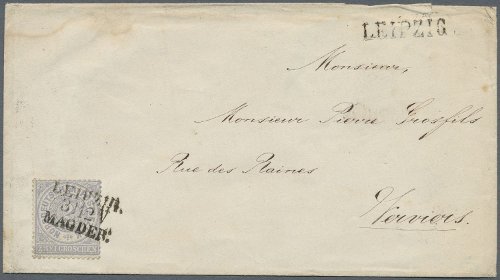 LEIPZIG
Monsieur,
Monsieur Pierre Grosfils
Rue des Plaines
Verviers.
LEIPZIG.
3 12 V
MAGDEB:
GROSCHEN